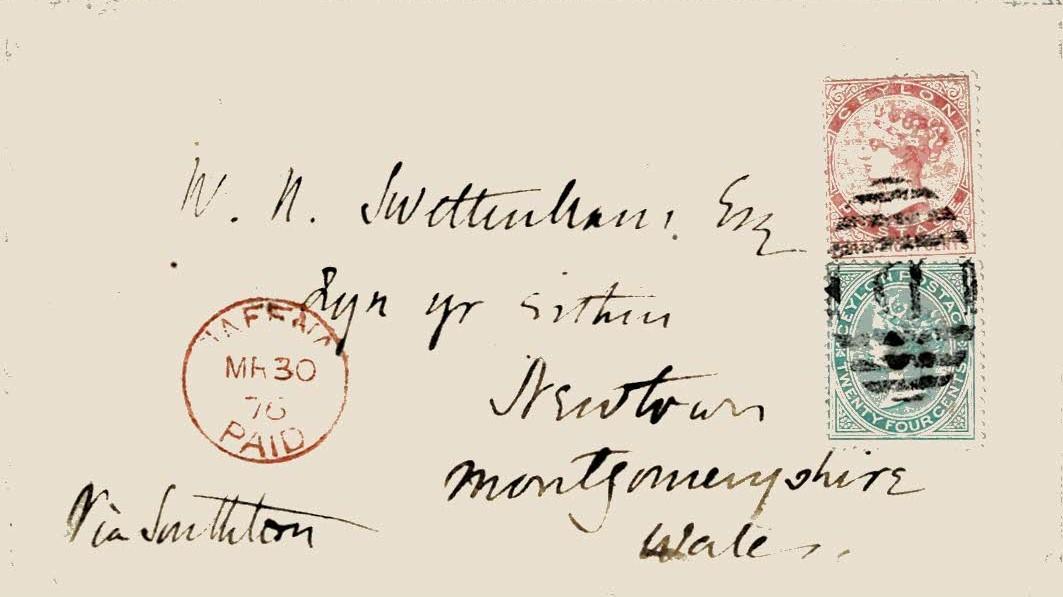 CEYLON
CENTS
CEYLON POSTAGE
TWENTY FOUR CENTS
W. N. Swettenham Esq
yr
Newtown
Montgomeryshire
Wales.
JAFFNA
MR 30
76
PAID
Via Southton